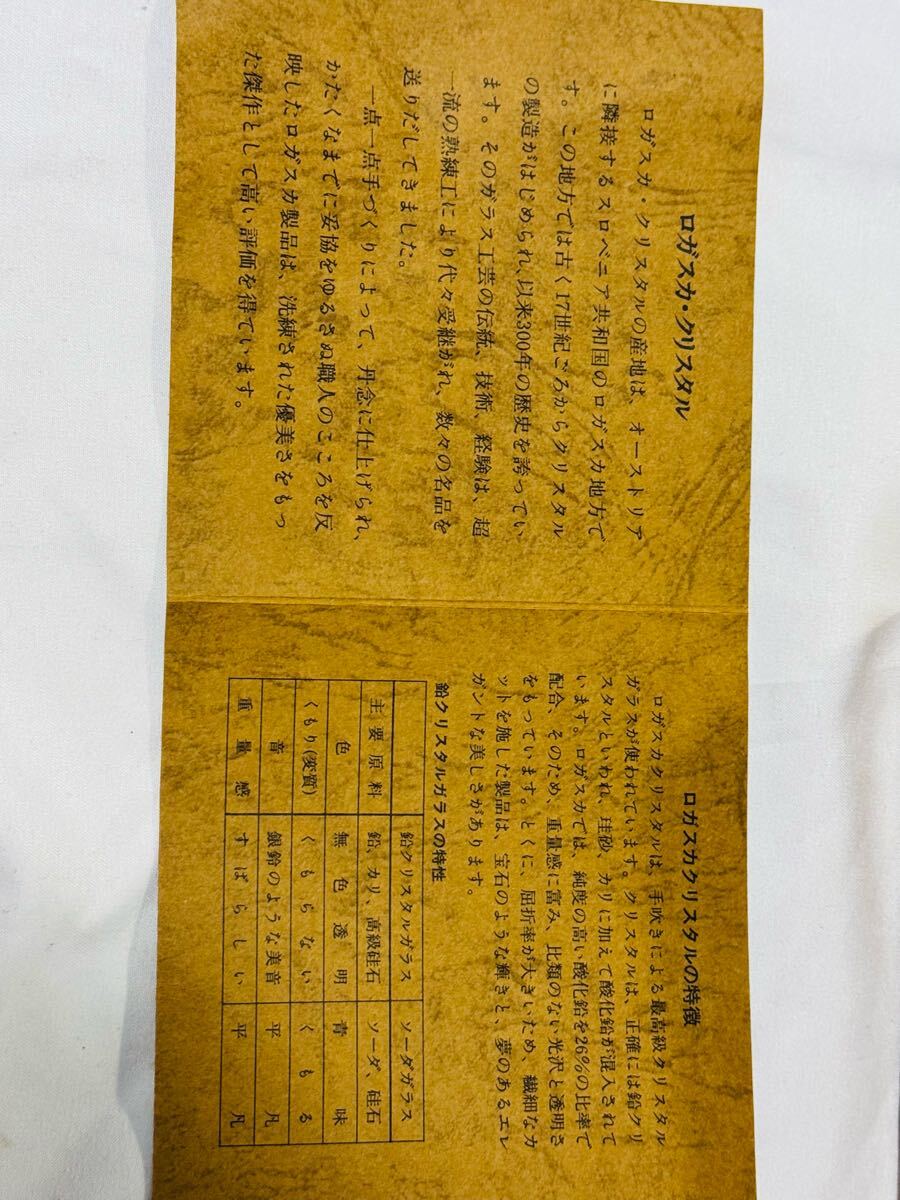 ロガスカ・クリスタル
ロガスカ・クリスタルの産地は、オーストリア
に隣接するスロベニア共和国のロガスカ地方で
す。この地方では古く17世紀ごろからクリスタル
の製造がはじめられ、以来300年の歴史を誇ってい
ます。そのガラス工芸の伝統、技術、経験は、超
一流の熟練工により代々受継がれ、数々の名品を
送りだしてきました。
一点一点手づくりによって、丹念に仕上げられ、
かたくなまでに妥協をゆるさぬ職人のこころを反
映したロガスカ製品は、洗練された優美さをもっ
た傑作として高い評価を得ています。
ロガスカクリスタルの特徴
ロガスカクリスタルは、手吹きによる最高級クリスタル
ガラスが使われています。クリスタルは、正確には鉛クリ
スタルといわれ、珪砂、カリに加えて酸化鉛が混入されて
います。ロガスカでは、純度の高い酸化鉛を26%の比率で
配合、そのため、重量感に富み、比類のない光沢と透明さ
をもっています。とくに、屈折率が大きいため、繊細なカ
ットを施した製品は、宝石のような輝きと、夢のあるエレ
ガントな美しさがあります。
鉛クリスタルガラスの特性
鉛クリスタルガラス ソーダガラス
主要原料 鉛、カリ、高級硅石 ソーダ、硅石
色 無色透明 青味
くもり(変質) くもらない くもる
音 銀鈴のような美音 平凡
重量感 すばらしい 平凡